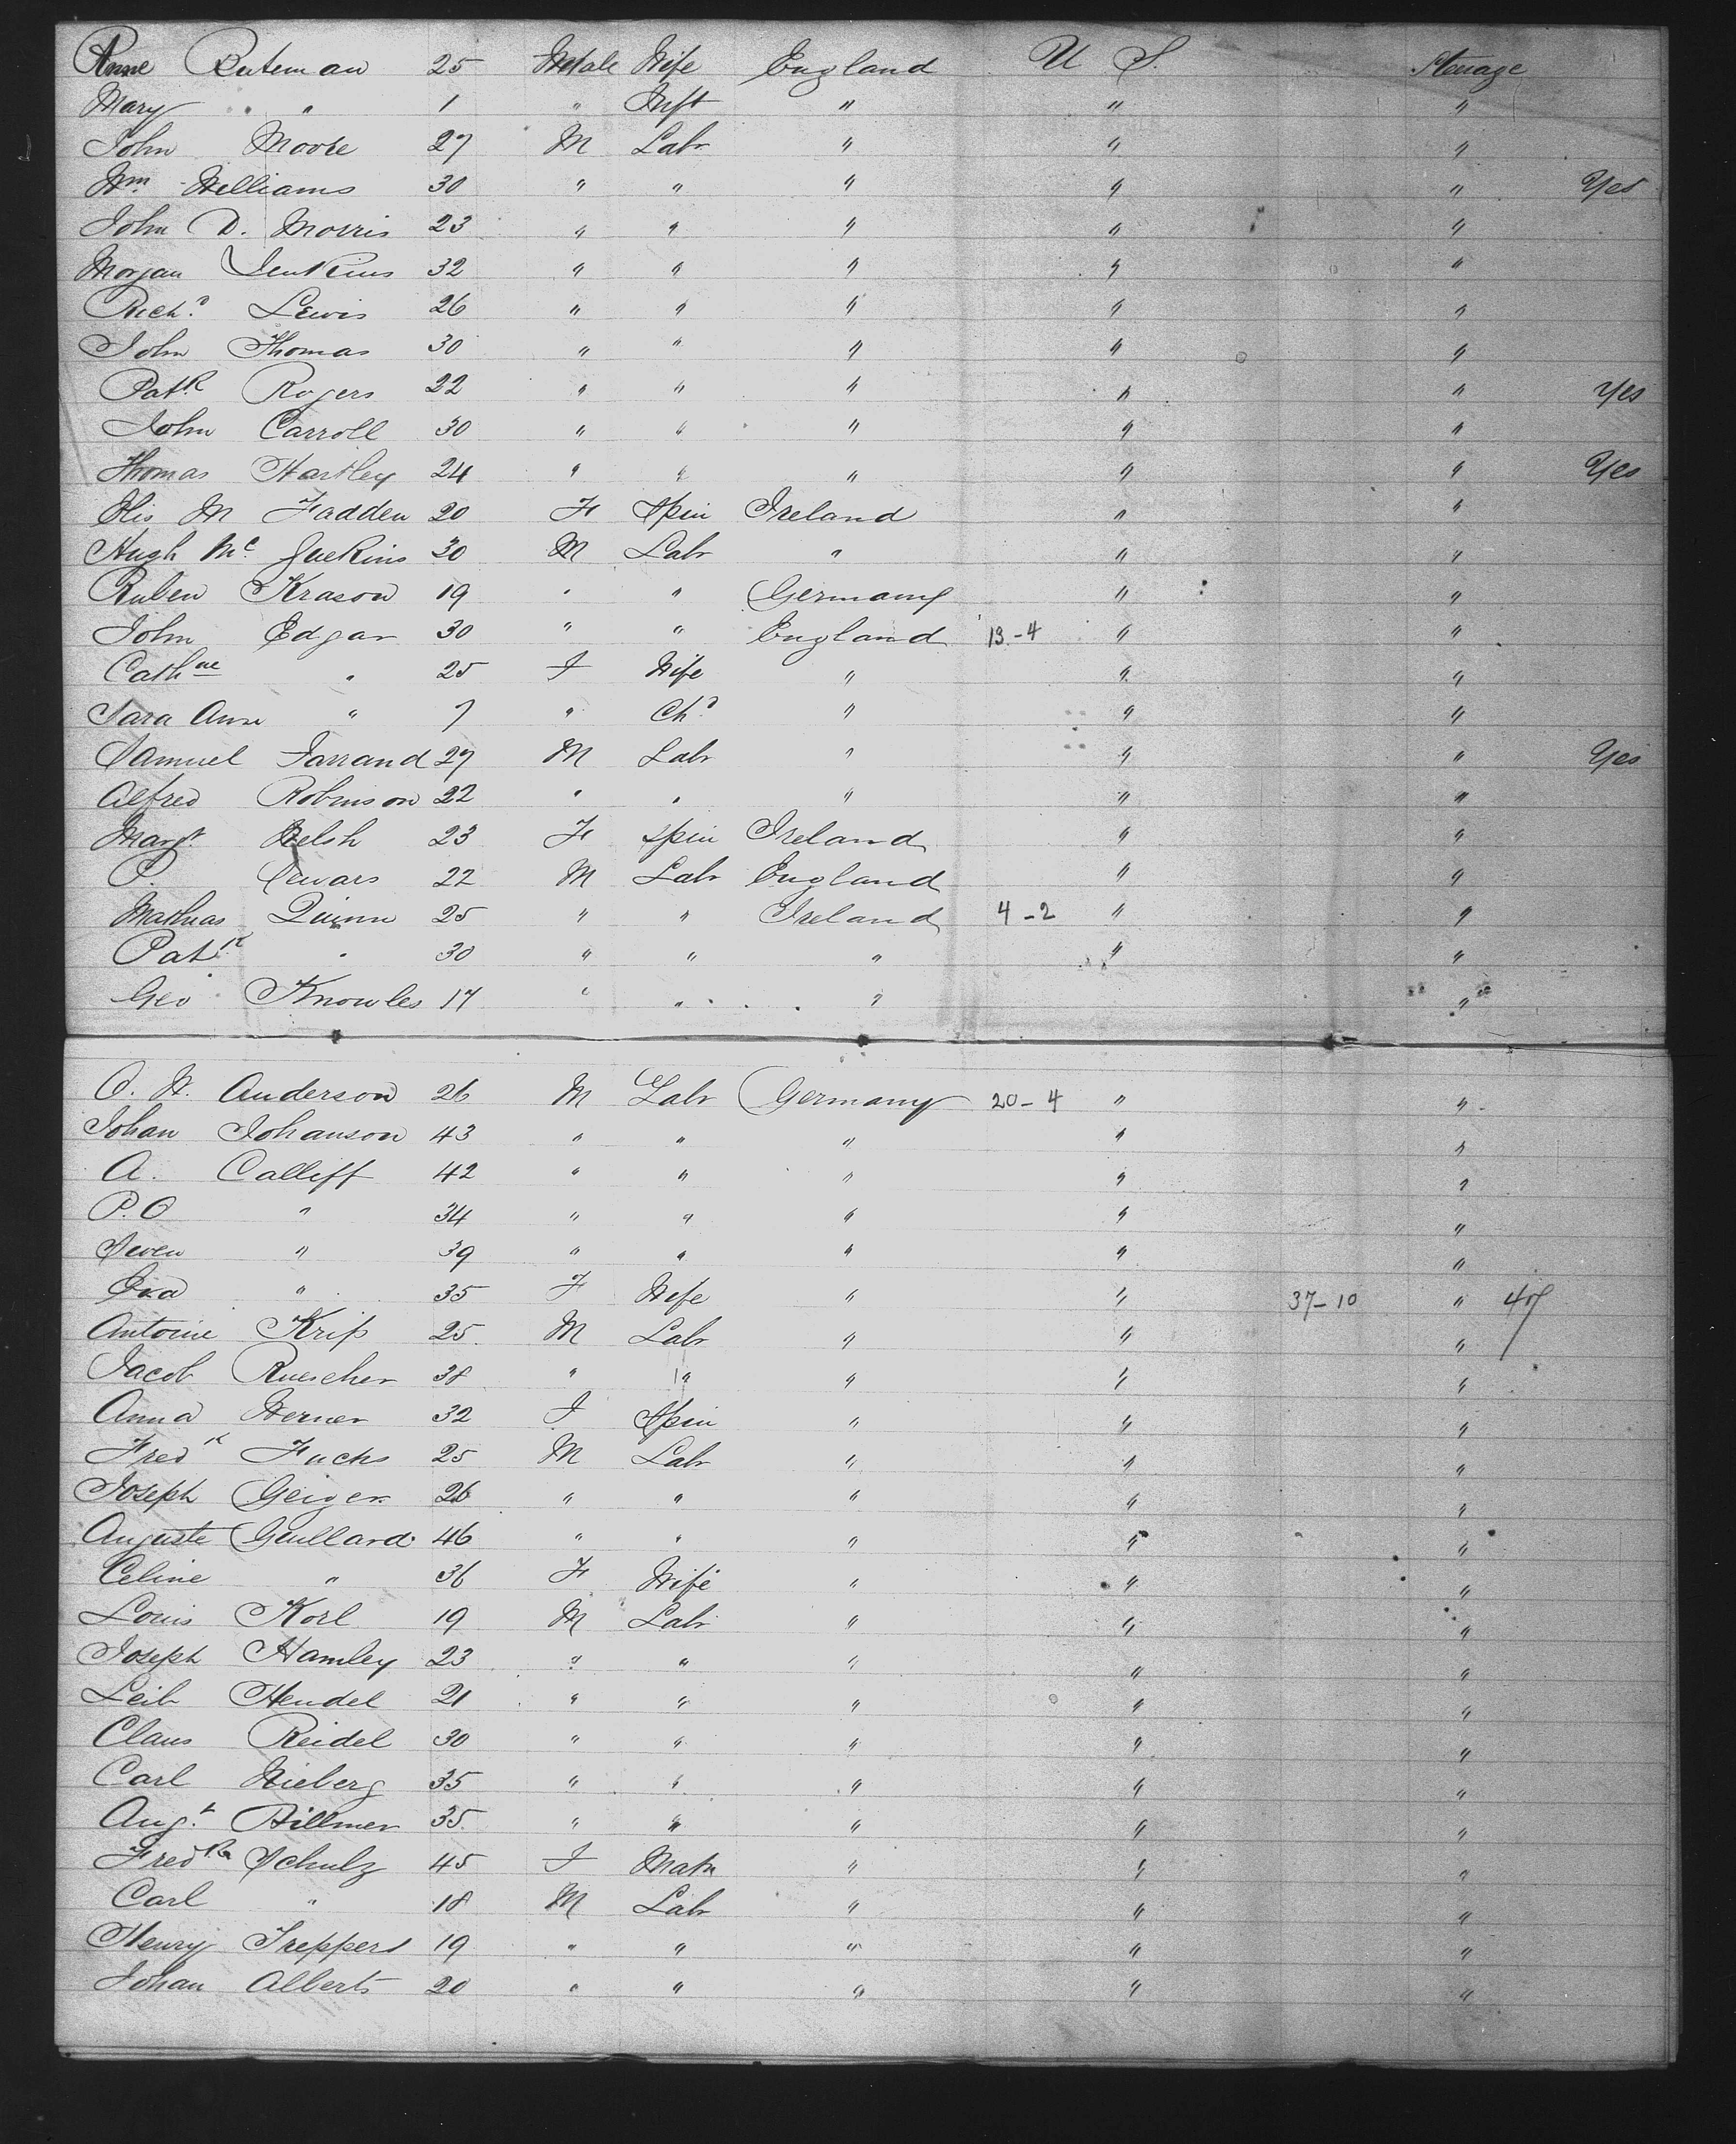 Anne Ruteman 25 Wife England U S. Steerage
Mary " 1 " Inft " " "
John Moore 27 M Labr " " "
Wm Williams 30 " " " " " Yes
John D. Morris 23 " " " " "
Morgan Jenkins 32 " " " " "
Richd Lewis 26 " " " " "
John Thomas 30 " " " " "
Patk Rogers 22 " " " " " Yes
John Carroll 30 " " " " "
Thomas Hartley 24 " " " " " Yes
M Fadden 20 F Spin Ireland " "
Hugh Mc 30 M Labr " " "
Ruben Krason 19 " " Germany " "
John Edgar 30 " " England 13-4 " "
Cathne " 25 F Wife " " "
Sara Ann " 7 " Chd " " "
Samuel Farrand 27 M Labr " " " Yes
Alfred Robinson 22 " " " " "
Margt Welsh 23 F Spin Ireland " "
P. 22 M Labr England " "
Mathias Quinn 25 " " Ireland 4-2 " "
Patk " 30 " " " " "
Geo Knowles 17 " " " "
A. W. Anderson 26 M Labr Germany 20-4 " "
Johan Johanson 43 " " " " "
A. Calliff 42 " " " " "
P.O " 34 " " " " "
Sven " 39 " " " " "
Eva " 35 F Wife " " 37-10 " 47
Antoine Krip 25 M Labr " " "
Jacob Ruescher 38 " " " " "
Anna Werner 32 F Spin " " "
Fredk Fuchs 25 M Labr " " "
Joseph Geiger 26 " " " " "
Auguste Guillard 46 " " " " "
Celine " 36 F Wife " " "
Louis Korl 19 M Labr " " "
Joseph Hamley 23 " " " " "
Leib Hendel 21 " " " " "
Claus Reidel 30 " " " " "
Carl Wieberg 35 " " " " "
Augt Billmer 35 " " " " "
Fredka Schulz 45 F Matr " " "
Carl " 18 M Labr " " "
Henry Treppers 19 " " " " "
Johan Alberts 20 " " " " "